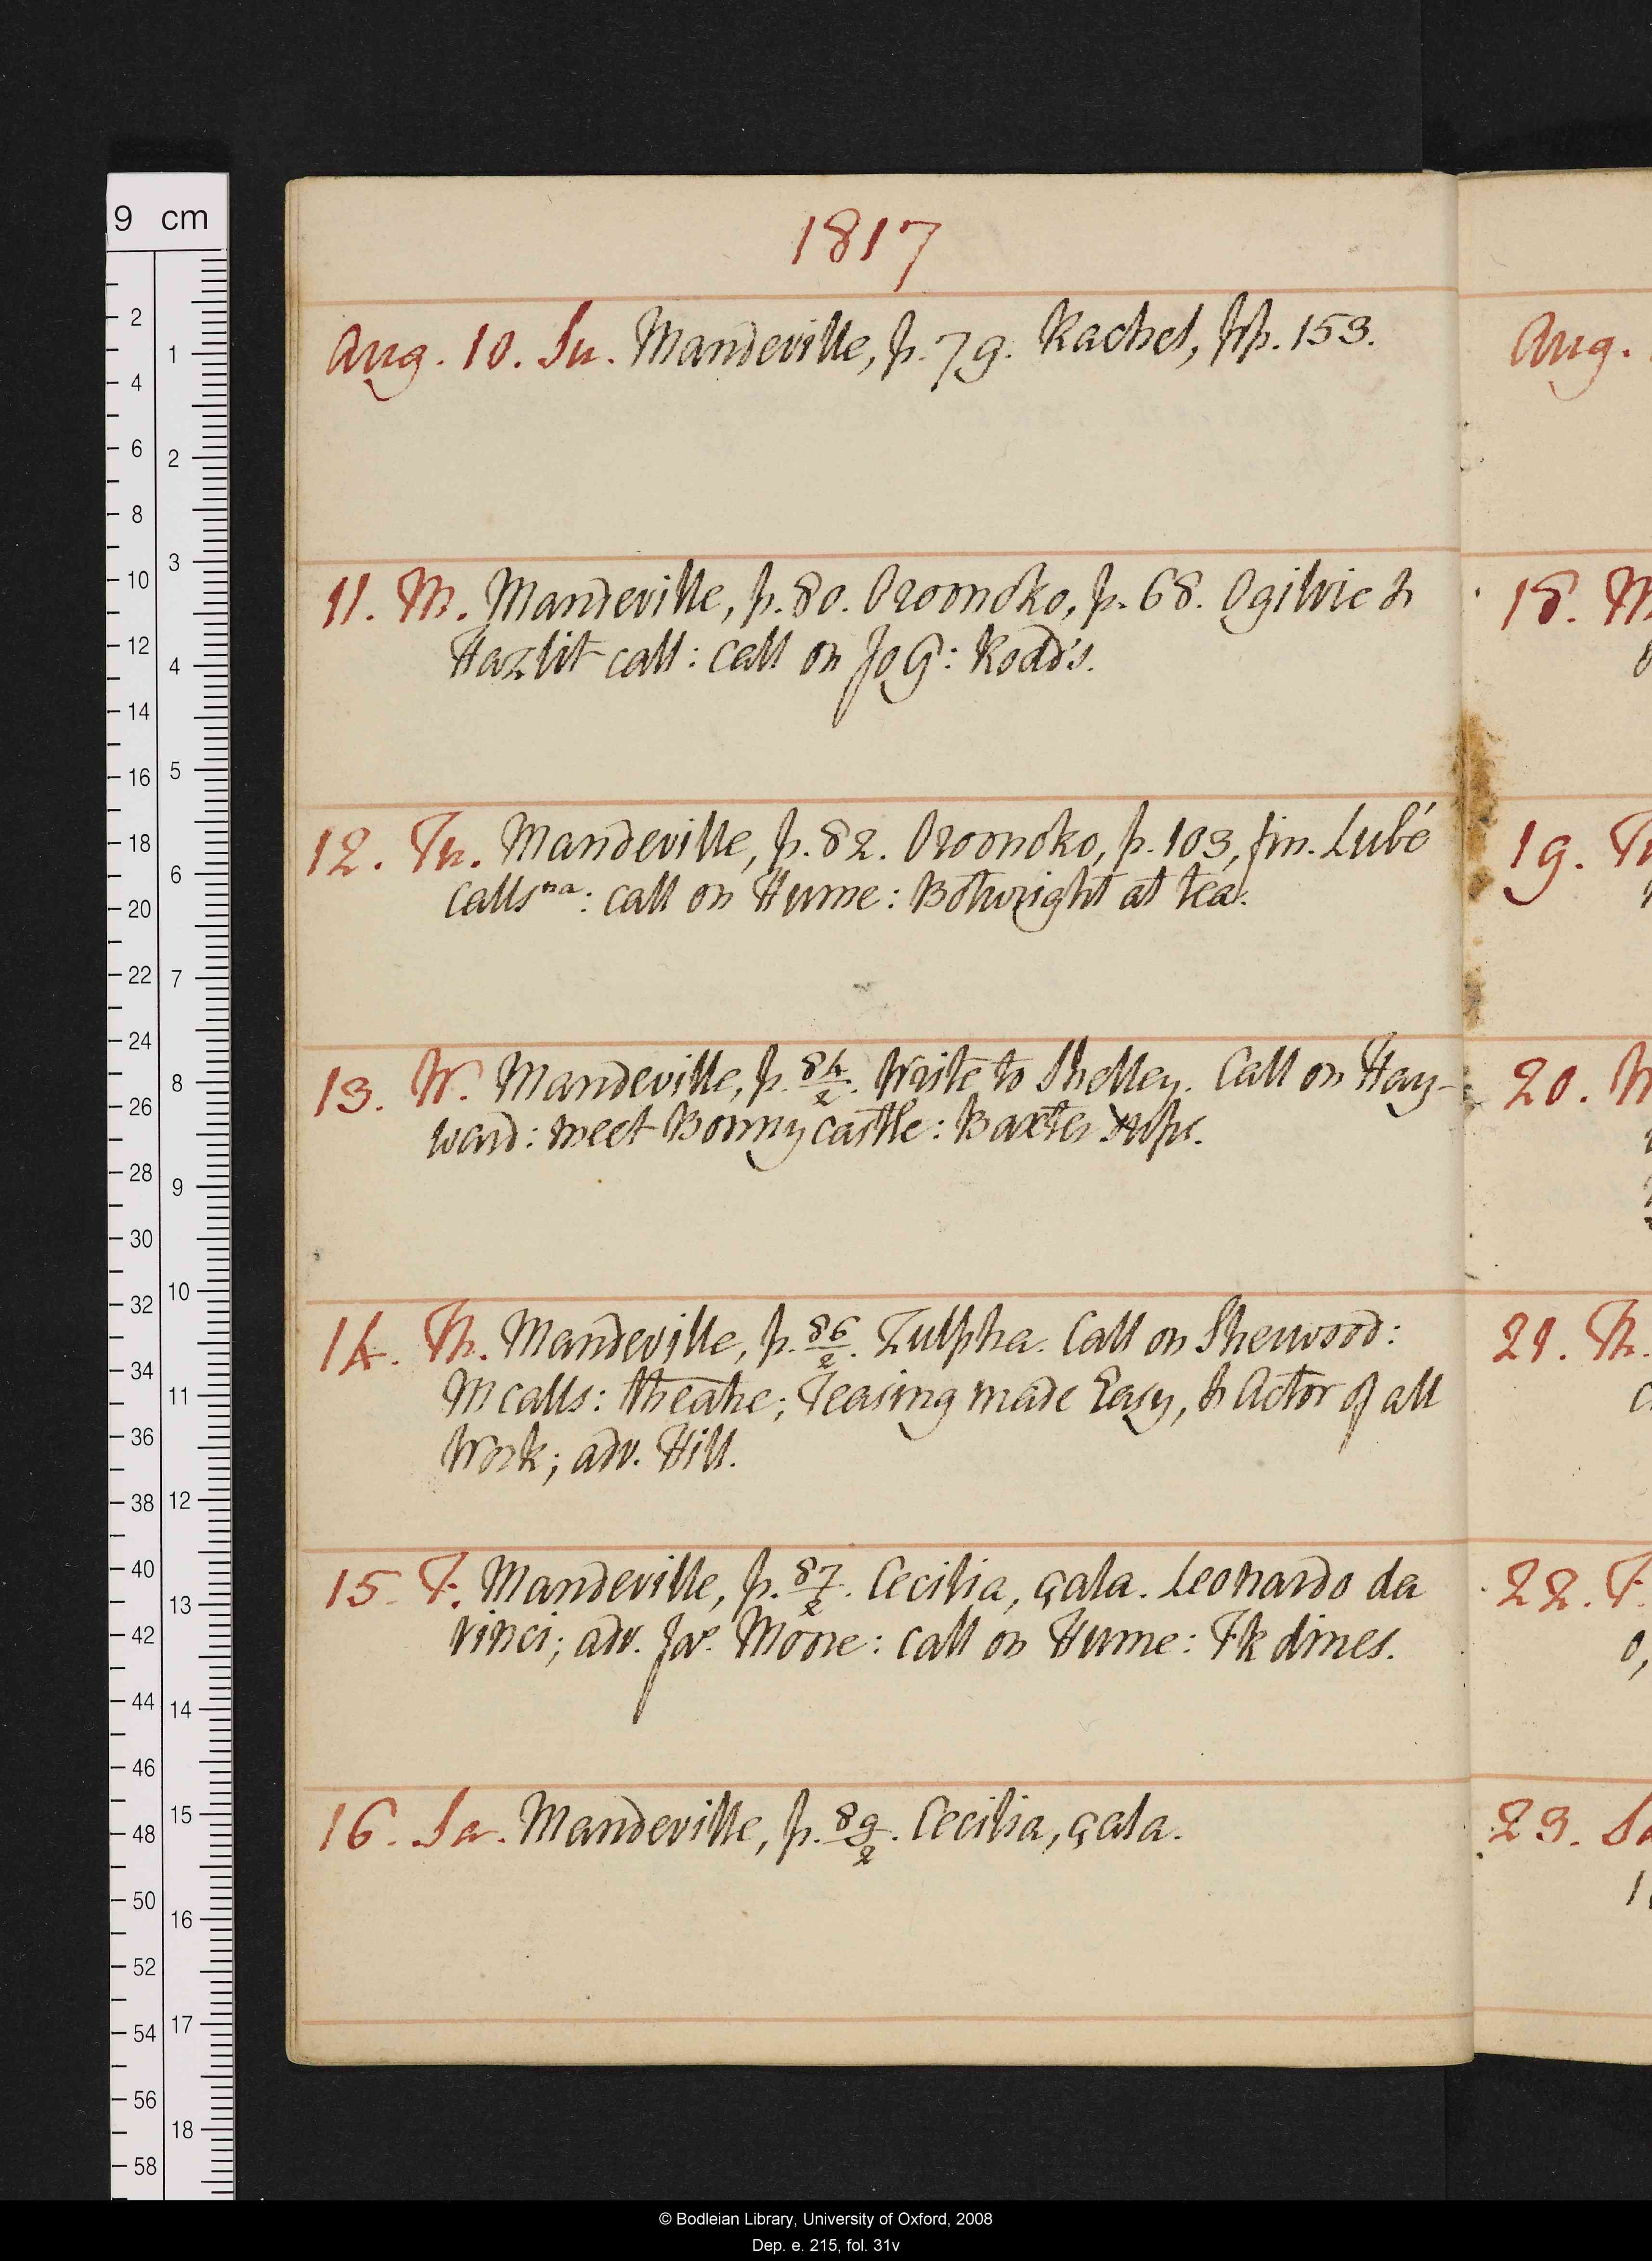 1817
Aug. 10. Su. Mandeville, p. 79. Rachel, pp. 153.
11. M. Mandeville, p. 80. Oroonoko, p. 68. Ogilvie &
Hazlit call: call on J o G: Rodd's.
12. Tu. Mandeville, p. 82. Oroonoko, p. 103, fin. Lubé
calls na: call on Hume: Botwright at tea.
13. W. Mandeville, p. 84/2. Write to Shelley. Call on Hay-
ward: meet Bonnycastle: Baxter sups.
14. Th. Mandeville, p. 86/2. Zulpha. Call on Sherwood:
M calls: theatre; Teasing made Easy, & Actor of all
Work; adv. Hill.
15. F. Mandeville, p. 87/2. Cecilia, çala. Leonardo da
Vinci; adv. Jas. Moore: call on Hume: Fk dines.
16. Sa. Mandeville, p. 89/2. Cecilia, çala.
Aug.
18. M
19. Tu
20.
21. Th.
22. F.
23. Sa
9 cm
2
4
6
8
10
12
14
16
18
20
22
24
26
28
30
32
34
36
38
40
42
44
46
48
50
52
54
56
58
1
2
3
4
5
6
7
8
9
10
11
12
13
14
15
16
17
18
© Bodleian Library, University of Oxford, 2008
Dep. e. 215, fol. 31v